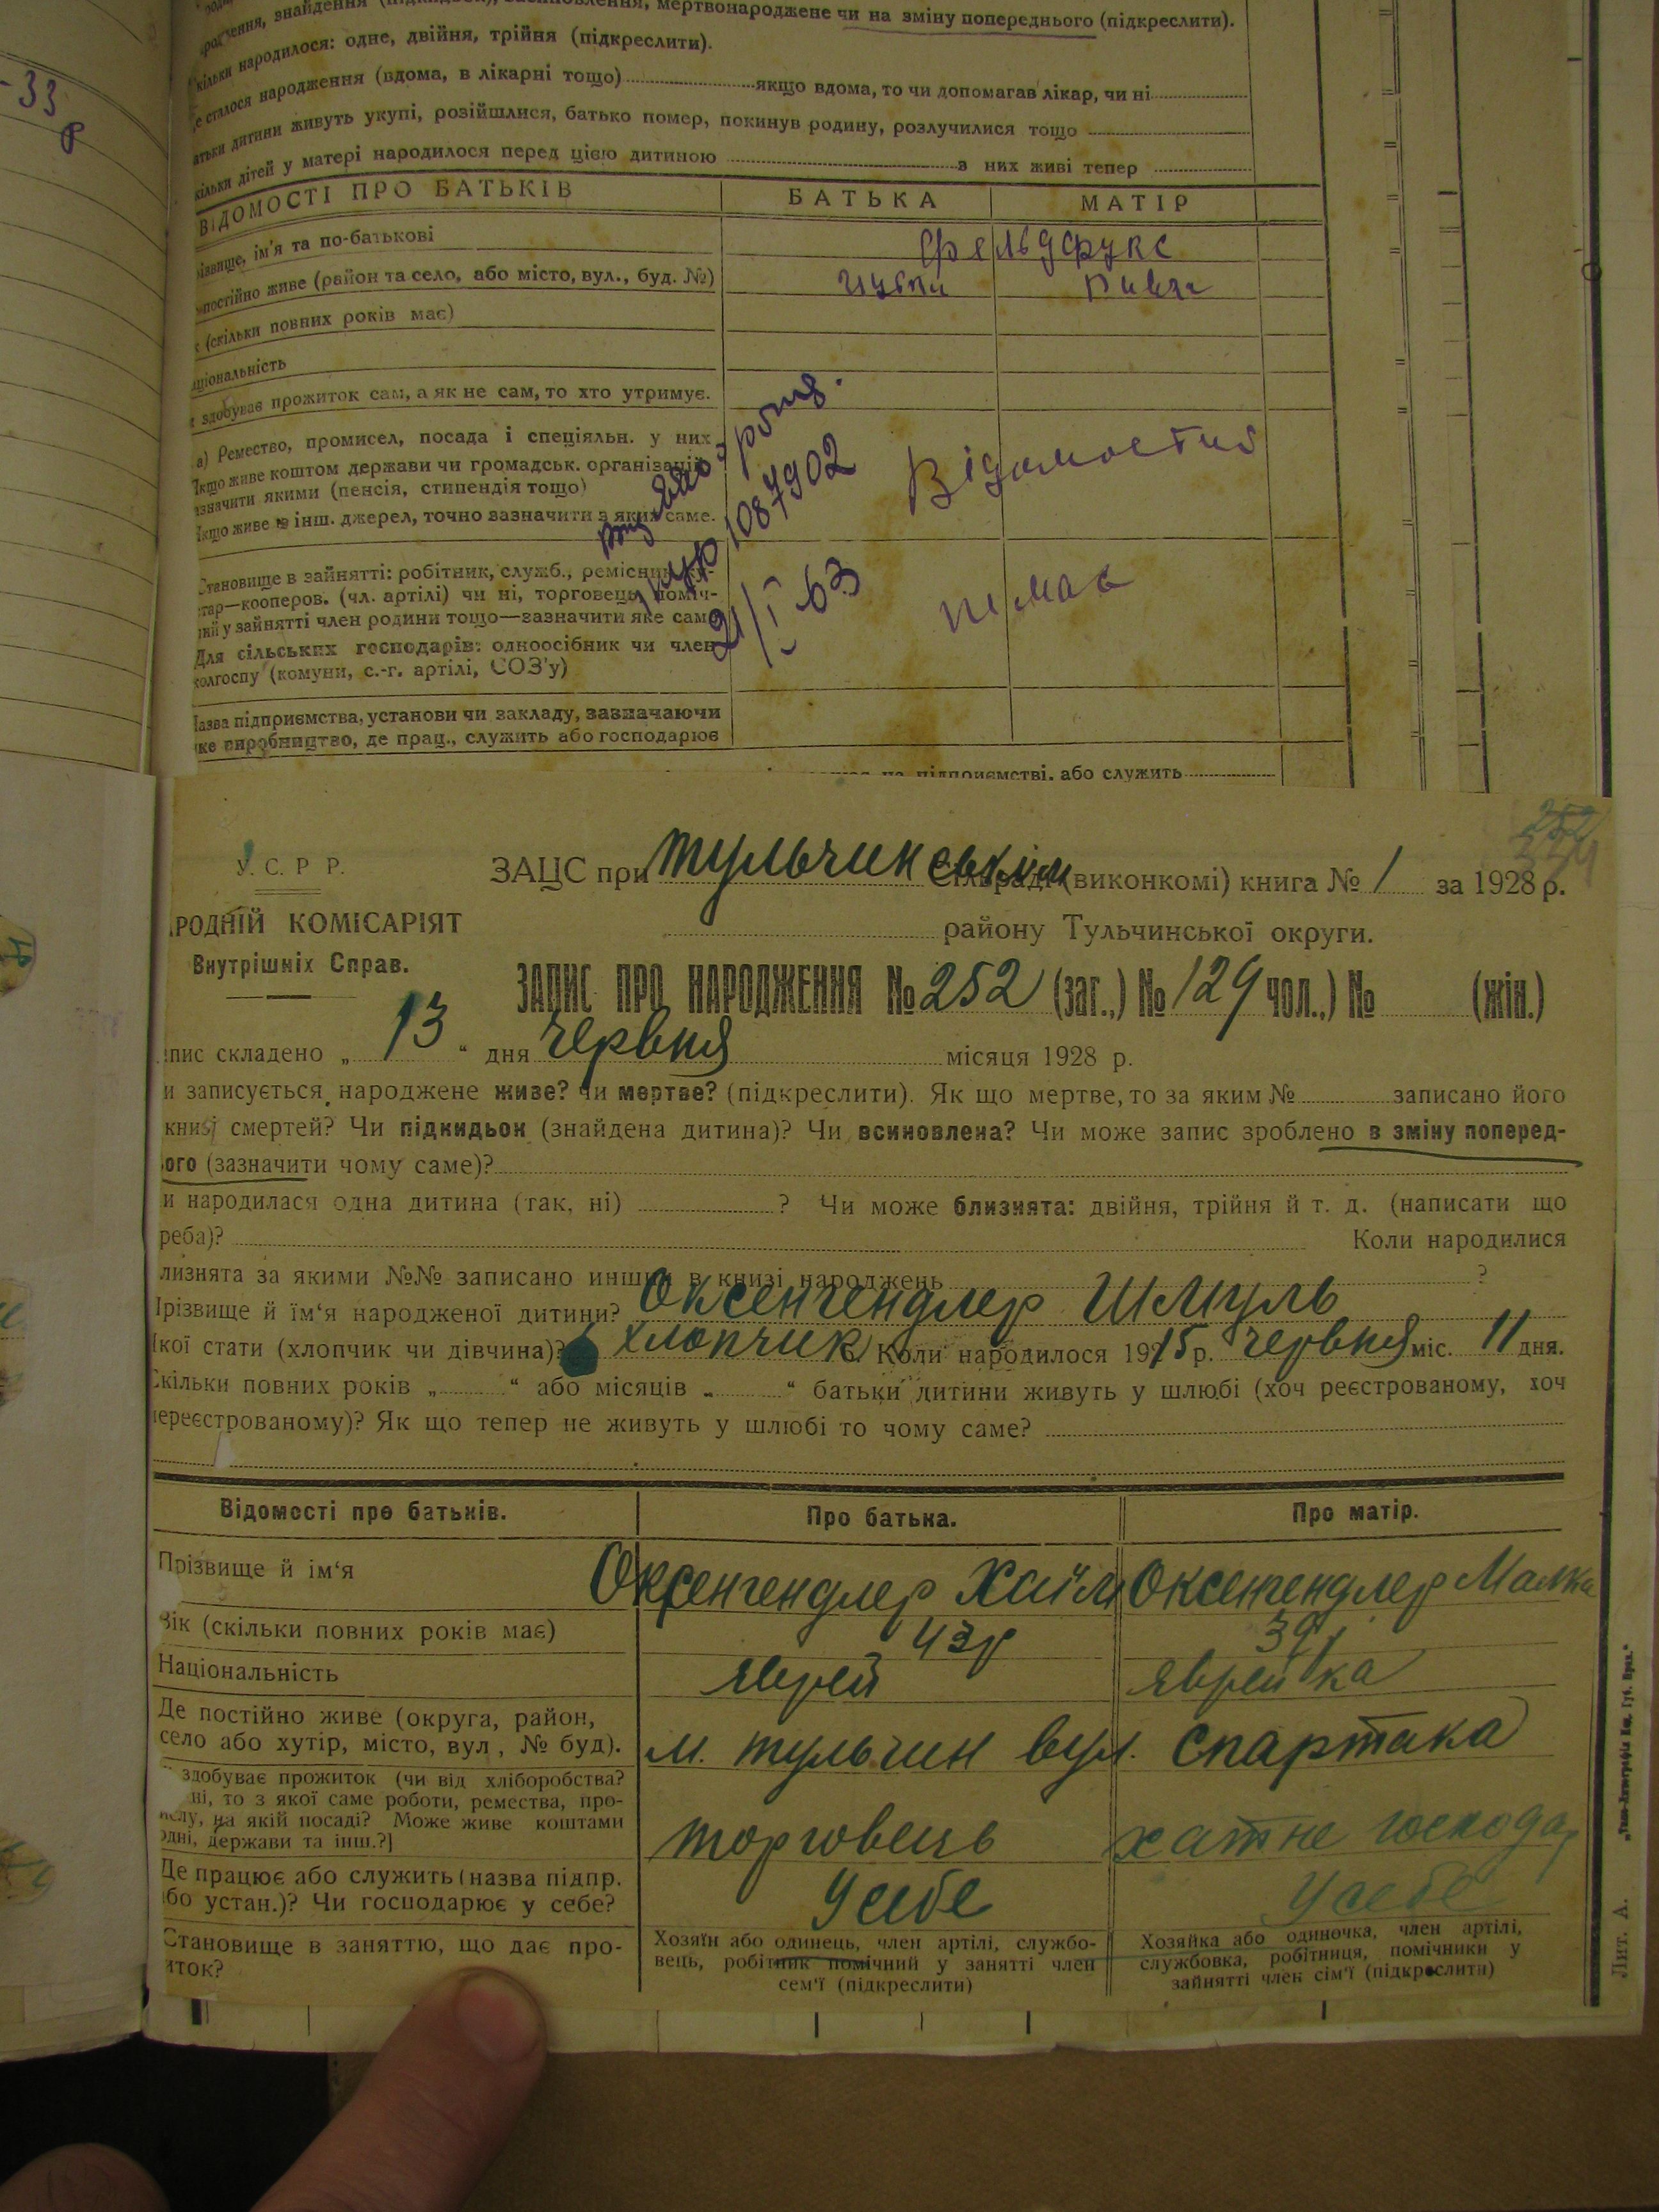 -33
р
знайдення мертвонароджене чи на зміну попереднього (підкреслити).
народилося: одне, двійня, трійня (підкреслити).
сталося народження (вдома, в лікарні тощо) якщо вдома, то чи допомагав лікар, чи ні
дитини живуть укупі, розійшлися, батько помер, покинув родину, розлучилися тощо
дітей у матері народилося перед цією дитиною з них живі тепер
ВІДОМОСТІ ПРО БАТЬКІВ БАТЬКА МАТІР
ім'я та по-батькові Фельдфукс
постійно живе (район та село, або місто, вул., буд. №)
(скільки повних років має)
здобуває прожиток сам, а як не сам, то хто утримує.
а) Ремество, промисел, посада і спеціяльн. у них
живе коштом держави чи громадськ. організацій
якими (пенсія, стипендія тощо)
живе з інш. джерел, точно зазначити з яких саме.
Відомостий
немає
1087902
21/I-63
Становище в зайнятті: робітник, служб., ремісник
кооперов. (чл. артілі) чи ні, торговець,
у зайнятті член родини тощо—зазначити яке саме
Для сільських господарів: одноосібник чи член
колгоспу (комуни, с.-г. артілі, СОЗ'у)
Назва підприємства, установи чи закладу, зазначаючи
яке виробництво, де прац., служить або господарює
на підприємстві, або служить
252
У. С. Р. Р.
ЗАЦС при Тульчинським Сільраді (виконкомі) книга № 1 за 1928 р.
РОДНІЙ КОМІСАРІЯТ
району Тульчинської округи.
Внутрішніх Справ.
ЗАПИС ПРО НАРОДЖЕННЯ № 252 (заг.,) № 129 чол.,) № (жін.)
пис складено „ 13 “ дня червня місяця 1928 р.
и записується народжене живе? Чи мертве? (підкреслити). Як що мертве, то за яким № записано його
книзі смертей? Чи підкидьок (знайдена дитина)? Чи всиновлена? Чи може запис зроблено в зміну поперед-
ого (зазначити чому саме)?
и народилася одна дитина (так, ні) ? Чи може близнята: двійня, трійня й т. д. (написати що
реба)? Коли народилися
лизнята за якими №№ записано инших в книзі народжень ?
Прізвище й їм‘я народженої дитини? Оксенгендлер Шмуль
кої стати (хлопчик чи дівчина)? хлопчик 6. Коли народилося 1915 р. червня міс. 11 дня.
Скільки повних років „ “ або місяців „ “ батьки дитини живуть у шлюбі (хоч реєстрованому, хоч
нереєстрованому)? Як що тепер не живуть у шлюбі то чому саме?
Відомості про батьків. Про батька. Про матір.
Прізвище й ім‘я Оксенгендлер Хайм Оксенгендлер Малка
Вік (скільки повних років має) 43р 39
Національність яврей яврейка
Де постійно живе (округа, район,
село або хутір, місто, вул, № буд). м. Тульчин вул. Спартака
здобуває прожиток (чи від хліборобства?
ні, то з якої саме роботи, ремества, про-
на якій посаді? Може живе коштами
держави та інш.?] торговець хатне господар
Де працює або служить (назва підпр.
або устан.)? Чи господарює у себе? У себе У себе
Становище в заняттю, що дає про-
иток?
Хозяїн або одинець, член артілі, службо-
вець, робітник помічний у занятті член
сем‘ї (підкреслити)
Хозяйка або одиночка, член артілі,
службовка, робітниця, помічники у
зайнятті член сім‘ї (підкреслити)
Лит. А.